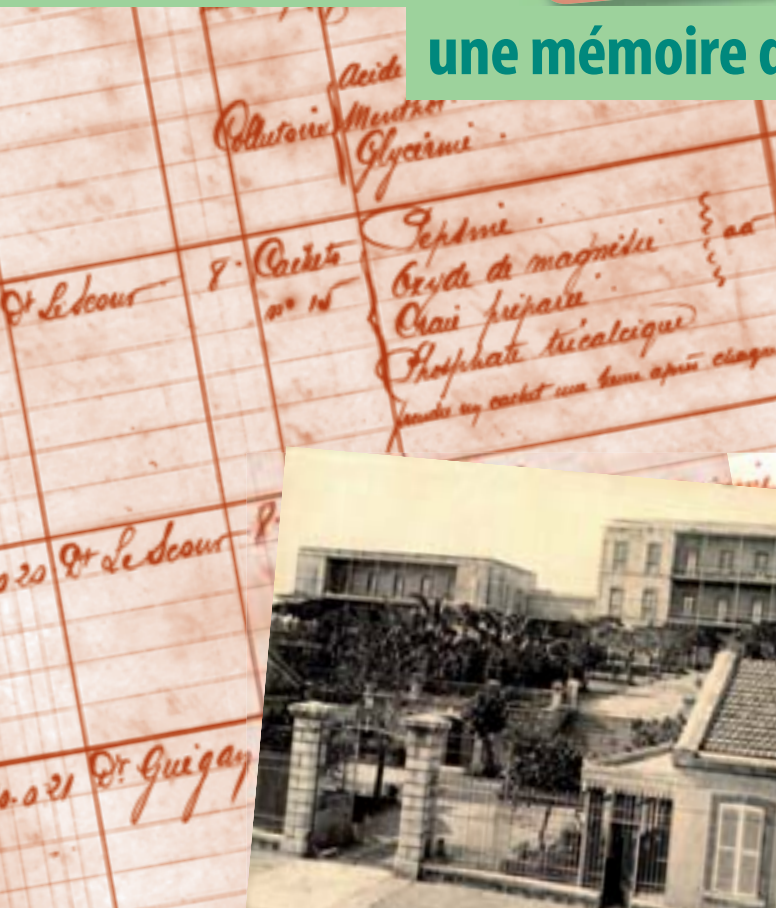 une mémoire d
Collutoire
Acide
Menthol
Glycérine .
Dr Le Scour 8 . Cachets
n° 15
Pepsine .
Oxyde de magnésie
Craie préparée .
Phosphate tricalcique
aa
prendre un cachet une heure après chaque
020 Dr Le Scour 8
0.021 Dr Guégan